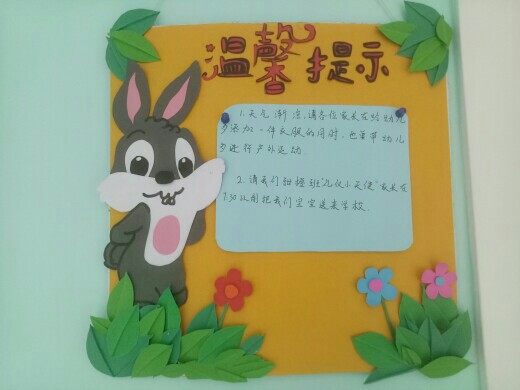 温馨提示
1.天气渐凉,请各位家长在给幼儿
多添加一件衣服的同时,也要带幼儿
多进行户外运动
2.请我们甜橙班"礼仪小天使"家长在
7:30以前把我们宝宝送来学校.